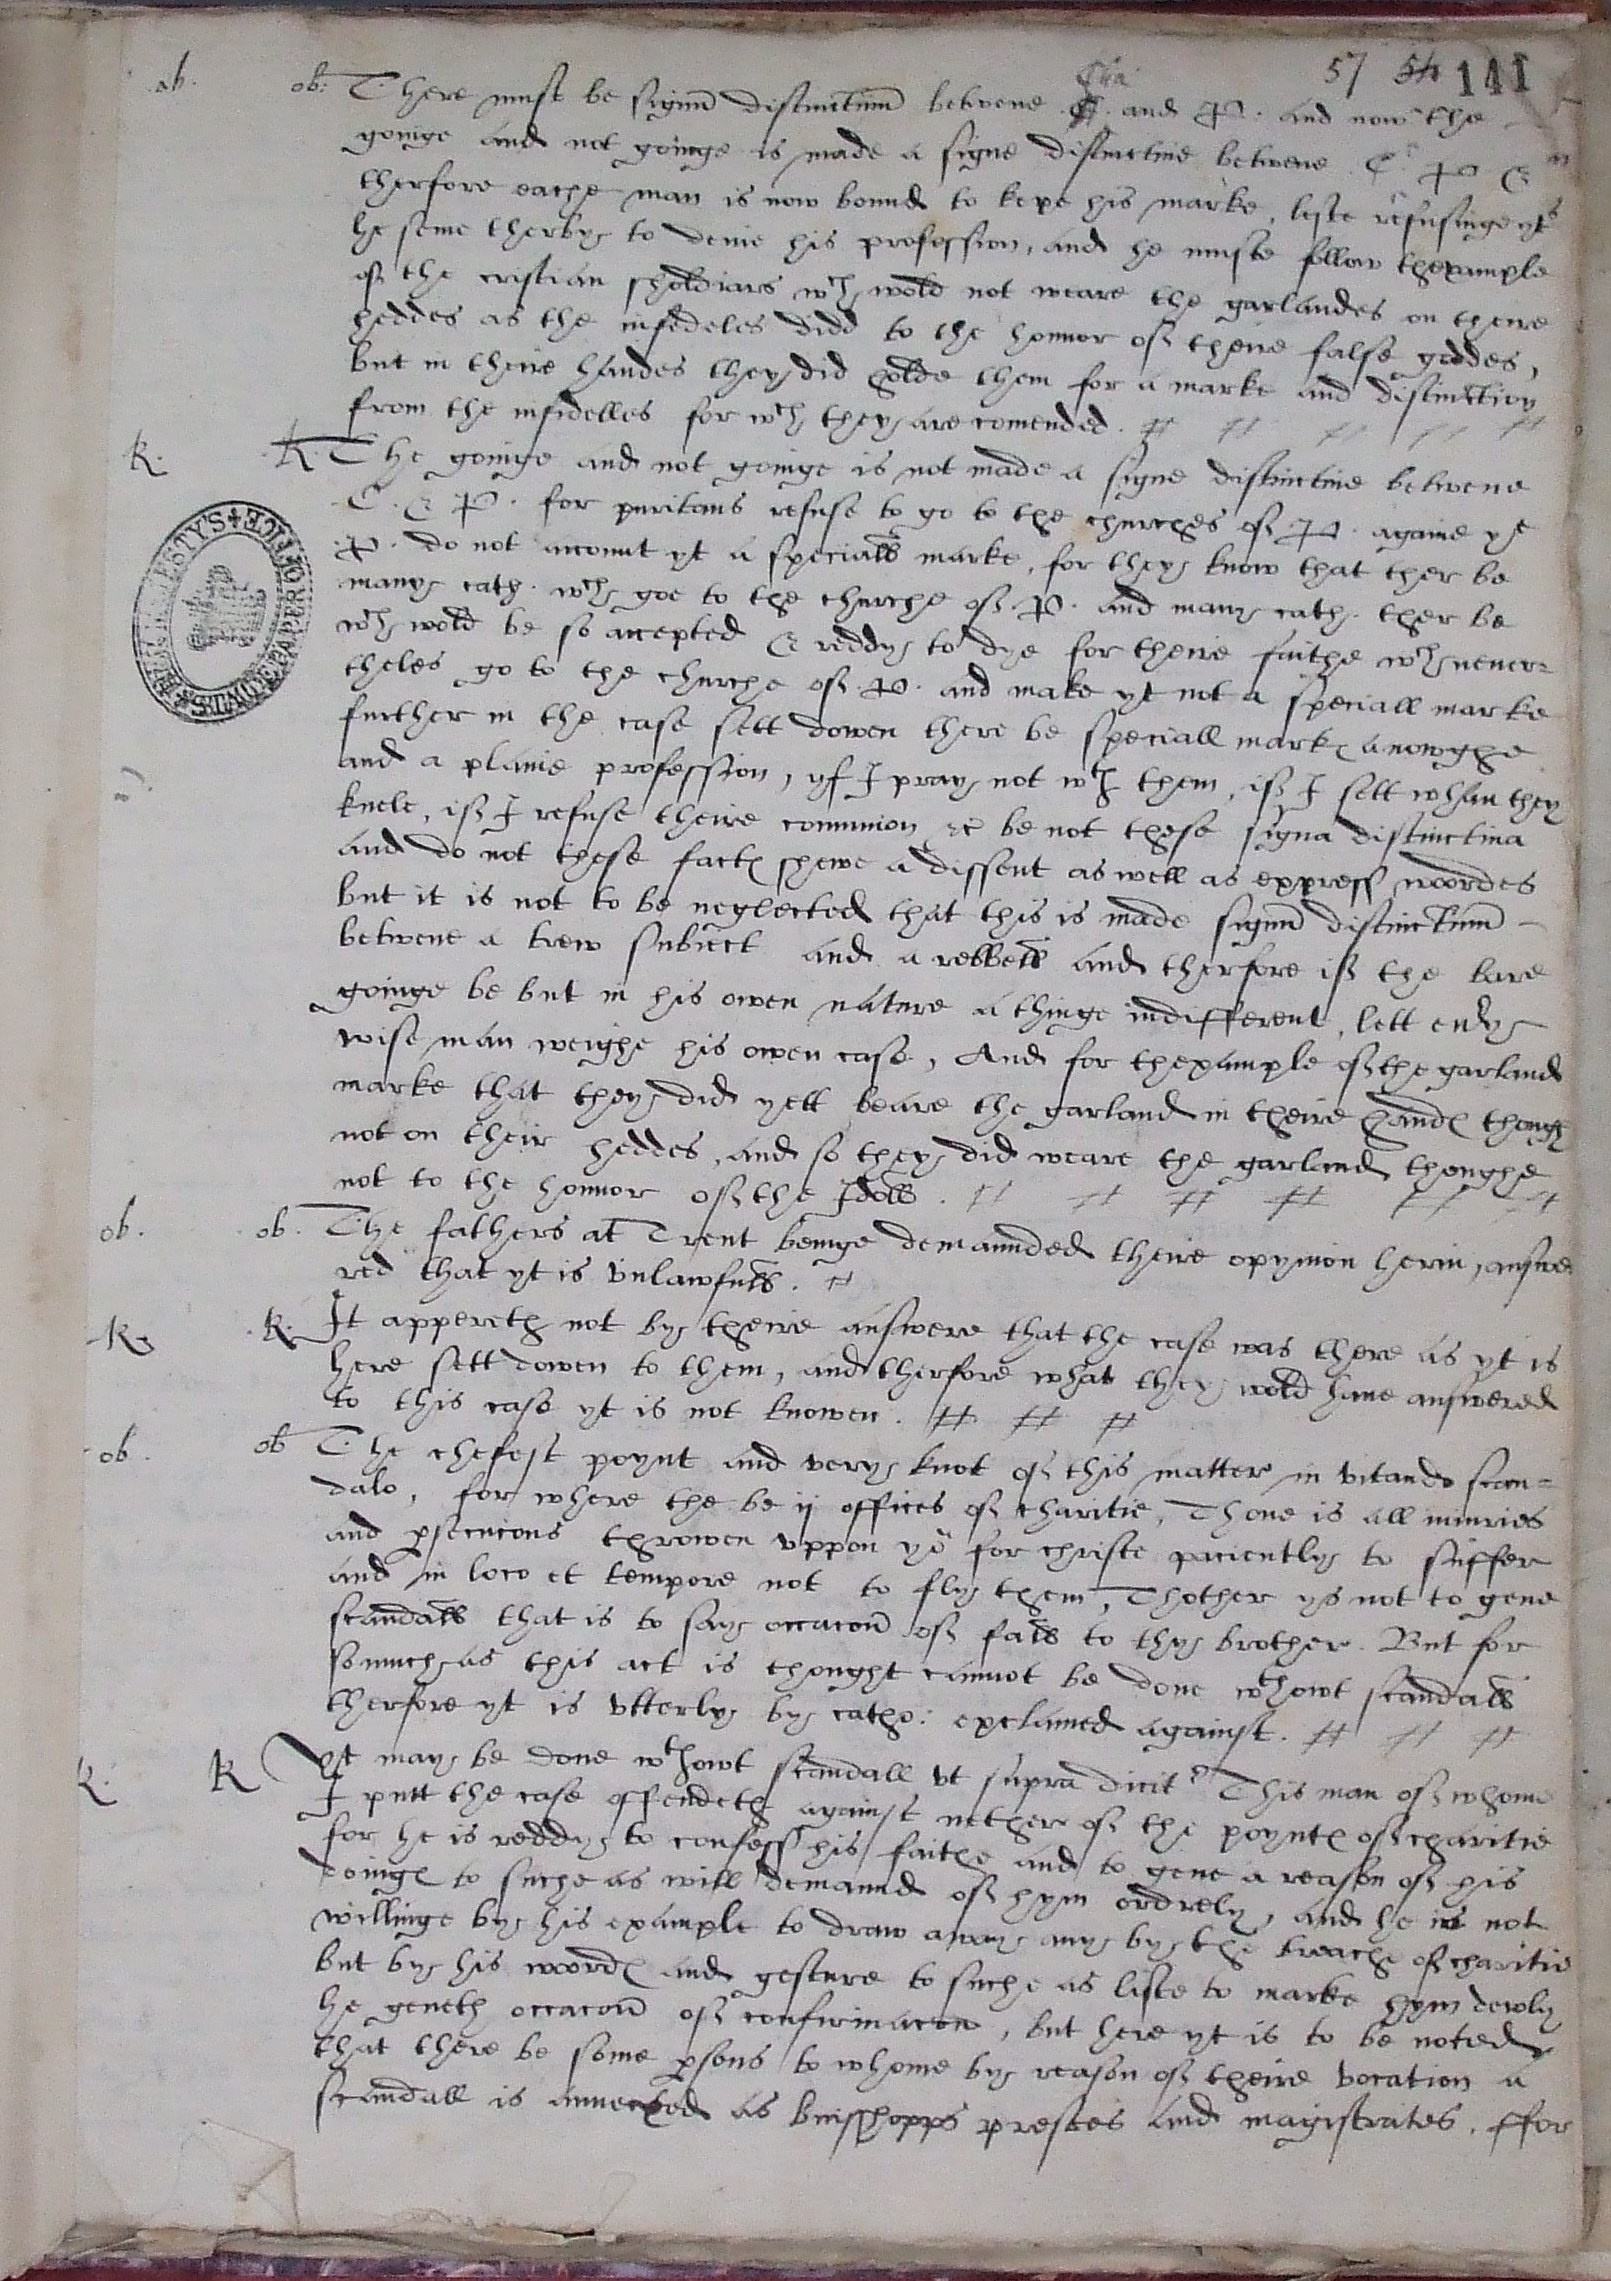 57 54 141
ob. ob: There must be signũ distinctiuũ betwene .C. and P. and now the
goinge and not goinge is made a signe distinctiue betwene C. P &
therfore eache man is now bound to kepe his marke, leste refusinge yt
he seme therby to denie his profession, and he muste follow thexample
of the cristian sholdiars wch wold not weare the garlandes on theire
heddes as the infideles didd to the honnor of theire false goddes,
but in theire handes they did holde them for a marke and distinction
from the infidelles for wch they are comended.
R. R. The goinge and not goinge is not made a signe distinctiue betwene
C. & P. for puritans refuse to go to the churches of P. againe ye
.P. do not account yt a speciall marke, for they know that ther be
many cath. wch goe to the churche of .P. and many cath. ther be
wch wold be so accepted & reddy to dye for theire faithe wch neuer=
theles go to the churche of .P. and make yt not a speciall marke
further in the case sett dowen there be speciall markes anowghe
and a plaine profession, yf I pray not wth them, if I sett whan they
knele, if I refuse theire communion &c be not these signa distinctiua
and do not these factes shewe a dissent as well as express woordes
but it is not to be neglected that this is made signũ distinctiuũ
betwene a trew subiect and a rebbell and therfore if the bare
goinge be but in his owen nature a thinge indifferent, lett euery
wise man weighe his owen case, And for thexample of the garland
marke that they did yett beare the garland in theire handes though
not on their heddes, and so they did weare the garland thoughe
not to the honnor of the Idoll.
ob. ob. The fathers at Trent beinge demaunded theire opynion herin, answe
red that yt is vnlawfull.
R. R. It appereth not by theire answere that the case was there as yt is
here sett dowen to them, and therfore what they wold haue answered
to this case yt is not knowen.
ob. ob The chefest poynt and very knot of this matter in vitando scan=
dalo, for where the be ij offices of charitie, Thone is all iniuries
and psecucons throwen vppon yo for christe paciently to suffer
and in loco et tempore not to fly them, Thother ys not to geue
scandall that is to say occacoñ of fall to thy brother. But for
somuch as this act is thought cannot be done wthowt scandall
therfore yt is vtterly by catho: exclaimed against.
R. R Yt may be done wthowt scandall vt supra dicitr This man of whome
I putt the case offendeth against nether of the poyntes of charitie
for he is reddy to confess his faithe and to geue a reason of his
doinges to suche as will demaund of hym orderly, and he is not
willinge by his example to draw away any by the breache of charitie
but by his woordes and gesture to suche as liste to marke hym dewly
he geueth occacoñ of confirmacon, but here yt is to be noted
that there be some psons to whome by reason of theire vocation a
scandall is annexed as buisshopps prestes and magistrates. ffor
HER MAJESTY'S STATE PAPER OFFICE